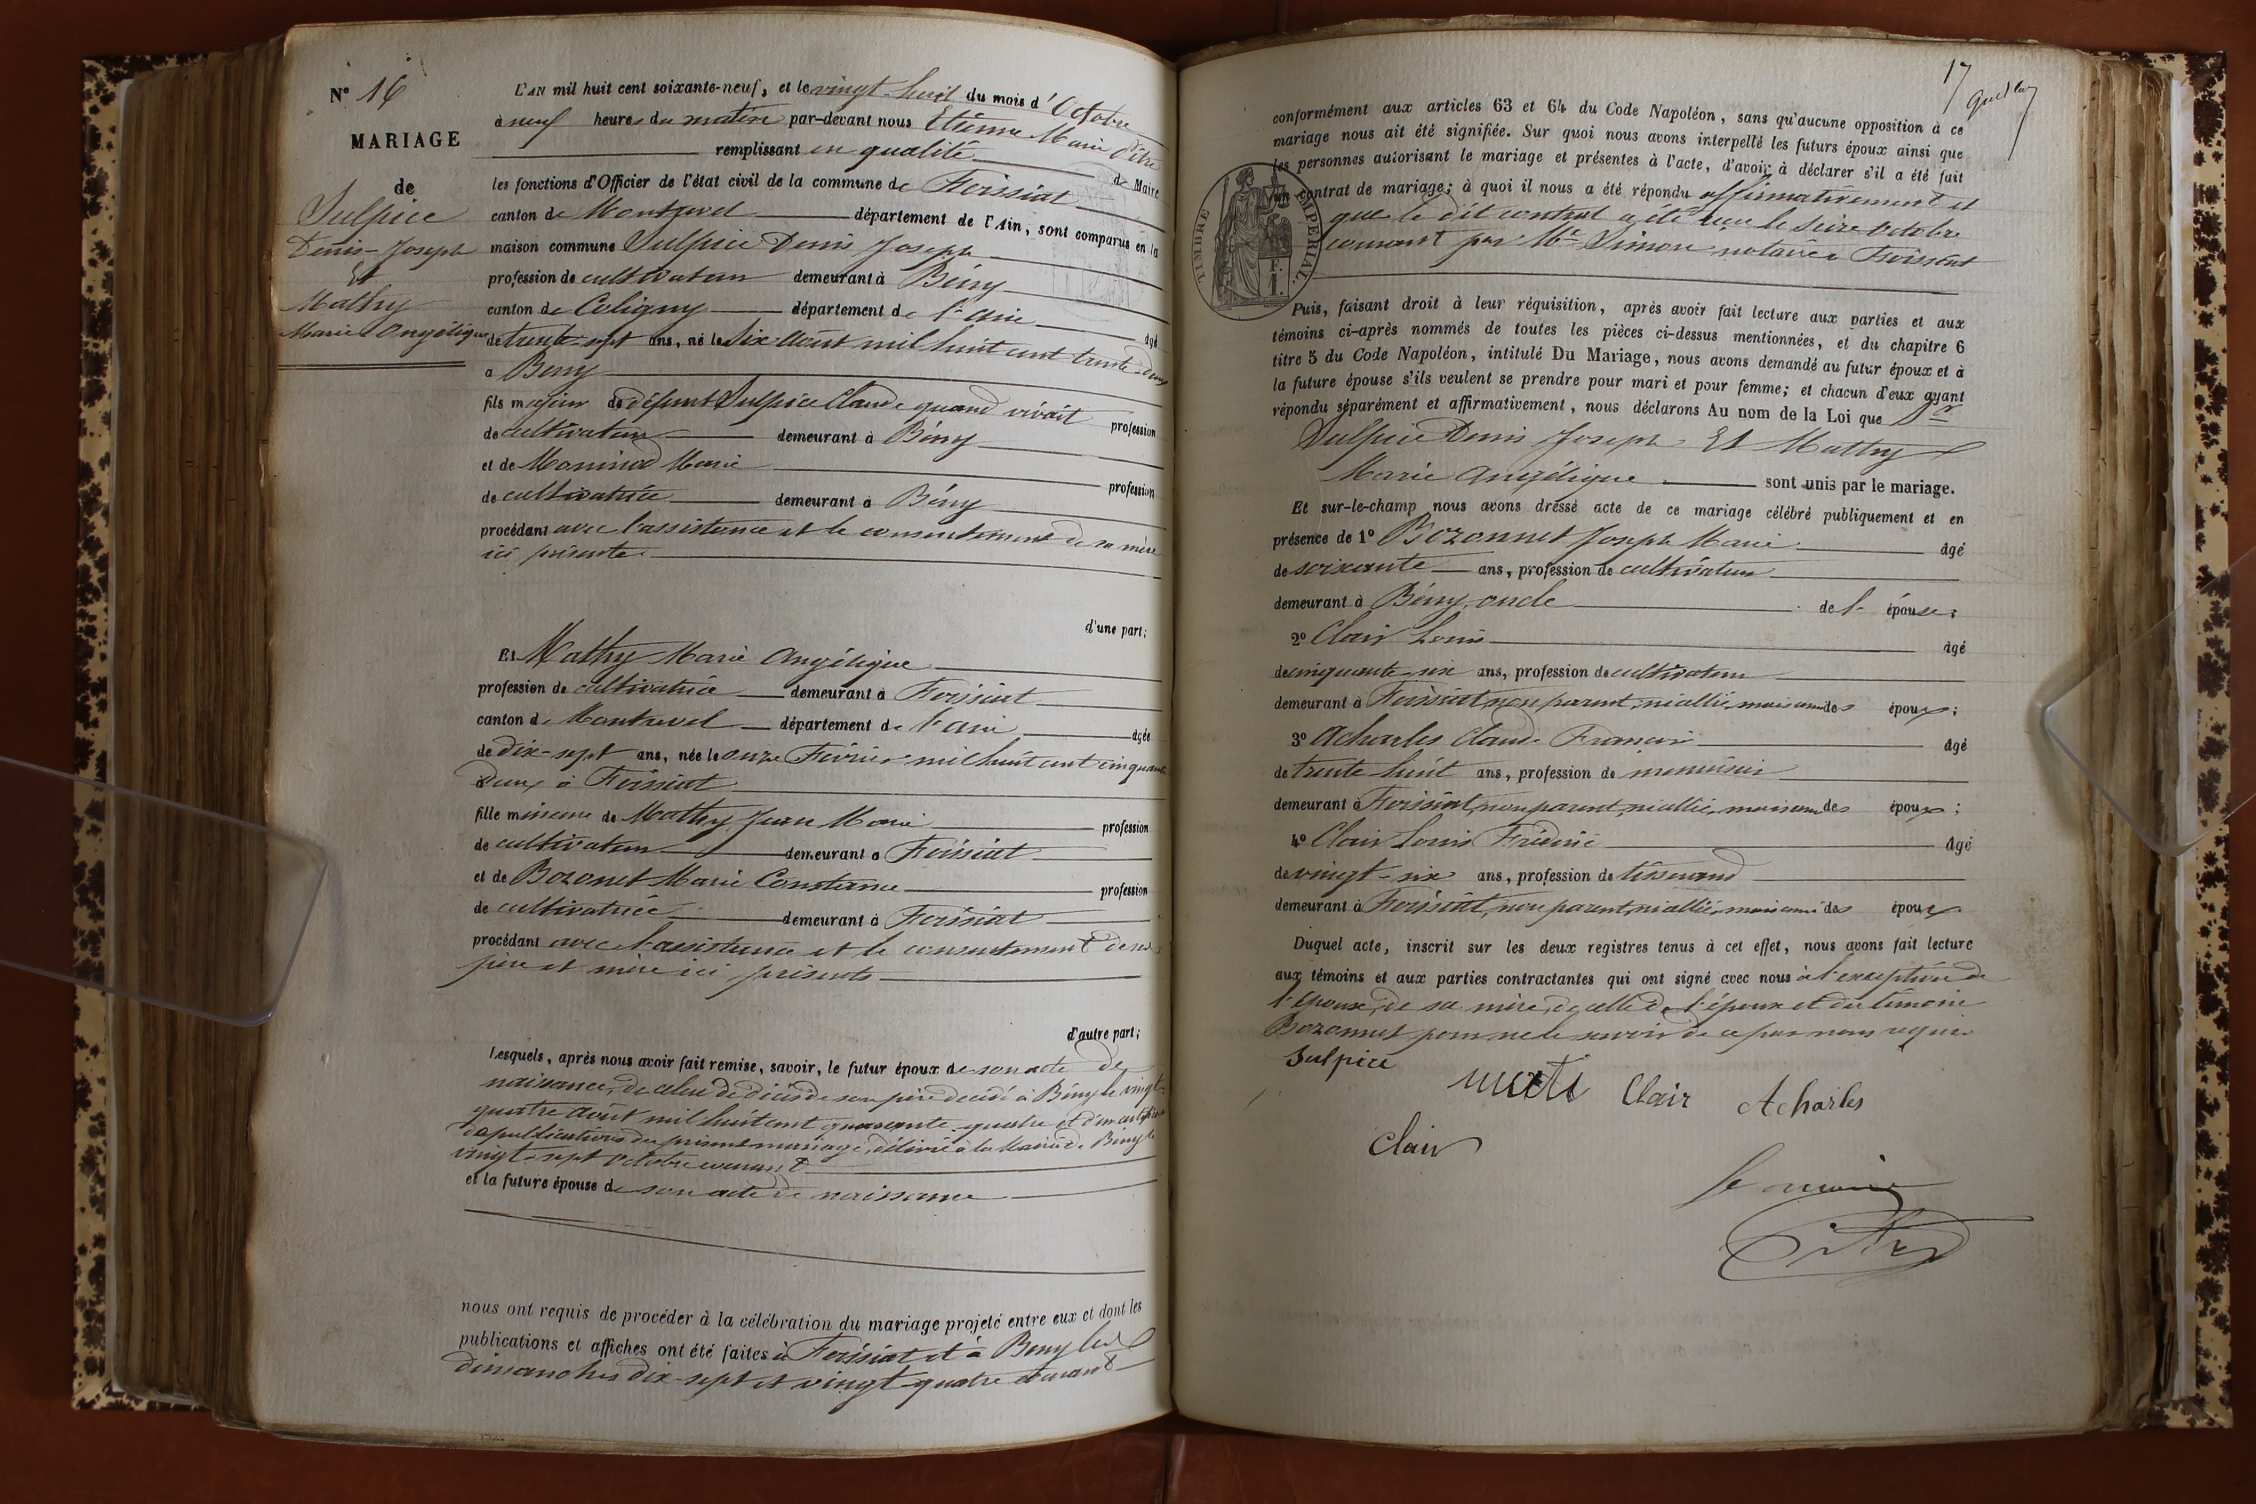 N° 16
MARIAGE
de
Sulpice
Denis-Joseph
Et
Mathy
Marie Angélique
L'AN mil huit cent soixante-neuf, et le vingt-huit du mois d'Octobre
à neuf heures du matin par-devant nous Etienne Marie
remplissant en qualité de Maire
les fonctions d'Officier de l'état civil de la commune de Foissiat
canton de Montrevel département de l'Ain, sont comparus en la
maison commune Sulpice Denis Joseph
profession de cultivateur demeurant à Bény
canton de Coligny département de l'Ain âgé
de trente-sept ans, né le six Août mil huit cent trente-deux
à Beny
fils majeur de défunt Sulpice Claude quand vivait profession
de cultivateur demeurant à Bény
et de Marie profession
de cultivatrice demeurant à Bény
procédant avec l'assistance et le consentement de sa mère
ici présente.
d'une part;
Et Mathy Marie Angélique
profession de cultivatrice demeurant à Foissiat
canton de Montrevel département de l'ain âgée
de dix-sept ans, née le onze Février mil huit cent cinquante
deux à Foissiat
fille mineure de Mathy Jean Marie profession
de cultivateur demeurant à Foissiat
et de Bozonet Marie Constance profession
de cultivatrice demeurant à Foissiat
procédant avec l'assistance et le consentement de ses
père et mère ici présents
d'autre part;
Lesquels, après nous avoir fait remise, savoir, le futur époux de son acte de
naissance, de celui de décès de son père décédé à Bény le vingt-
quatre août mil huit cent quarante-quatre et d'un certificat
de publications du présent mariage, délivré à la Mairie de Bény le
vingt-sept octobre courant
et la future épouse de son acte de naissance
nous ont requis de procéder à la célébration du mariage projeté entre eux et dont les
publications et affiches ont été faites à Foissiat et à Beny les
dimanches dix-sept et vingt-quatre courant
17
conformément aux articles 63 et 64 du Code Napoléon, sans qu'aucune opposition à ce
mariage nous ait été signifiée. Sur quoi nous avons interpellé les futurs époux ainsi que
les personnes autorisant le mariage et présentes à l'acte, d'avoir à déclarer s'il a été fait
un contrat de mariage; à quoi il nous a été répondu affirmativement et
que le dit contrat a été reçu le seize octobre
courant par Me Simon notaire à Foissiat
TIMBRE IMPERIAL.
Puis, faisant droit à leur réquisition, après avoir fait lecture aux parties et aux
témoins ci-après nommés de toutes les pièces ci-dessus mentionnées, et du chapitre 6
titre 5 du Code Napoléon, intitulé Du Mariage, nous avons demandé au futur époux et à
la future épouse s'ils veulent se prendre pour mari et pour femme; et chacun d'eux ayant
répondu séparément et affirmativement, nous déclarons Au nom de la Loi que
Sulpice Denis Joseph Et Mathy
Marie Angélique sont unis par le mariage.
Et sur-le-champ nous avons dressé acte de ce mariage célébré publiquement et en
présence de 1° Bozonnet Joseph Marie âgé
de soixante ans, profession de cultivateur
demeurant à Bény, oncle de l'épouse;
2° Clair Louis âgé
de cinquante-six ans, profession de cultivateur
demeurant à Foissiat, non parent, ni allié, mais ami des époux;
3° Acharles Claude François âgé
de trente huit ans, profession de menuisier
demeurant à Foissiat, non parent, ni allié, mais ami des époux;
4° Clair Louis Frédéric âgé
de vingt-six ans, profession de tisserand
demeurant à Foissiat, non parent, ni allié, mais ami des époux
Duquel acte, inscrit sur les deux registres tenus à cet effet, nous avons fait lecture
aux témoins et aux parties contractantes qui ont signé avec nous à l'exception de
l'épouse, de sa mère, de celle de l'époux et du témoin
Bozonnet pour ne le savoir de ce par nous requis
Sulpice
mati Clair Acharles
Clair
le maire